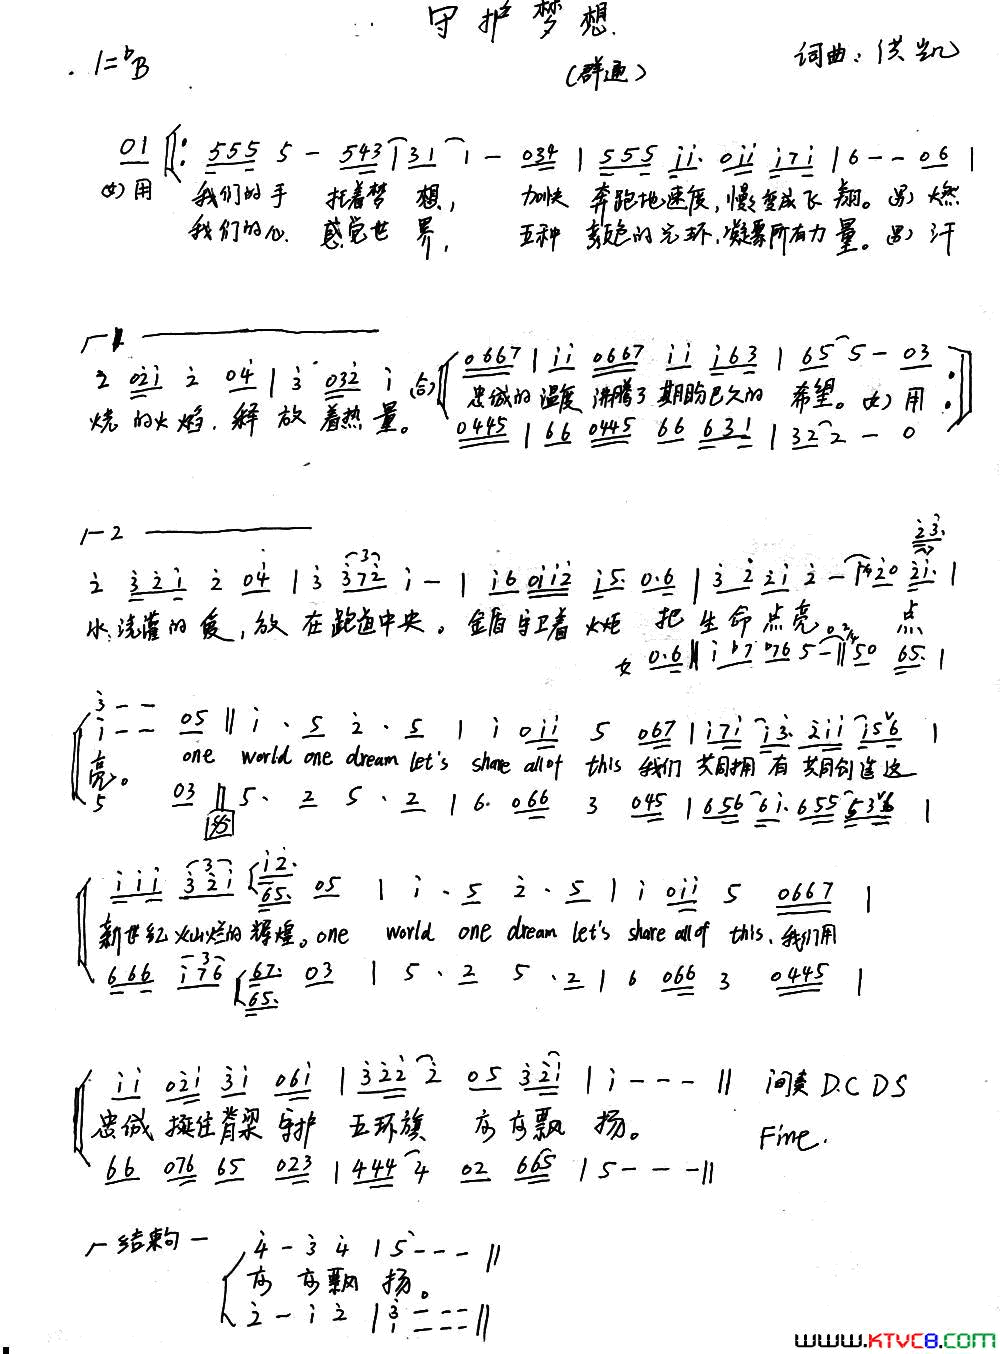 守护梦想
(群通)
1=♭B
词曲: 洪凯
01 ‖: 555 5 - 543 | 31 1 - 034 | 555 i̇i̇. 0i̇i̇ i̇7i̇ | 6 - - 06 |
女) 用 我们的手 托着梦 想, 加快 奔跑地速度, 慢慢变成飞 翔。男) 燃
我们的心 感觉世 界, 五种 颜色的光环, 凝聚所有力 量。男) 汗
┌1
2 02̇i̇ 2̇ 04̇ | 3̇ 032̇ i̇ (合) 0667 | i̇i̇ 0667 i̇i̇ i̇63 | 65 5 - 03 :‖
烧 的火焰, 释 放 着热 量。 忠诚的 温度 沸腾了 期盼已久的 希望。女) 用
0445 | 66 0445 66 631 | 32 2 - 0
┌2
2̇3̇.
2̇ 3̇2̇i̇ 2̇ 04̇ | 3̇ 3̇72̇ i̇ - | i̇6 0i̇i̇2̇ i̇5. 0.6 | 3̇ 2̇ 2̇i̇ 2̇ - | 2̇0 2̇i̇. |
水 浇灌的 爱, 放 在 跑道中央。 金盾守卫着 火炬 把 生命点亮 点
女 0.6 ‖ i̇ ♭7 ♭765 - ‖ 2/4 50 65. |
3̇ - -
i̇ - - 05 ‖ i̇ . 5 2̇ . 5 | i̇ 0i̇i̇ 5 067 | i̇7i̇ i̇3̇. 2̇i̇i̇ i̇56 |
亮。 one world one dream let's share all of this 我们 共同拥有 共同创造这
5 03 ‖ 5. 2 5. 2 | 6. 066 3 045 | 656 6i̇. 655 536 |
i̇i̇i̇ 3̇2̇i̇ i̇2̇. 65. 05 | i̇ . 5 2̇ . 5 | i̇ 0i̇i̇ 5 0667 |
新世纪 火灿烂的 辉煌。one world one dream let's share all of this、我们用
666 i̇76 67. 65. 03 | 5 . 2 5 . 2 | 6 066 3 0445 |
i̇i̇ 02̇i̇ 3̇i̇ 06i̇ | 3̇2̇2̇ 2̇ 05 3̇2̇i̇ | i̇ - - - ‖ 间奏 D.C D S
忠诚 挺住脊梁 守护 五环旗 高高飘 扬。 Fine.
66 076 65 023 | 444 4 02 665 | 5 - - - ‖
┌ 结束句 —
4̇ - 3̇ 4̇ | 5̇ - - - ‖
高 高飘 扬。
2̇ - i̇ 2̇ | 3̇ i̇ - - - ‖
www.KTVC8.com